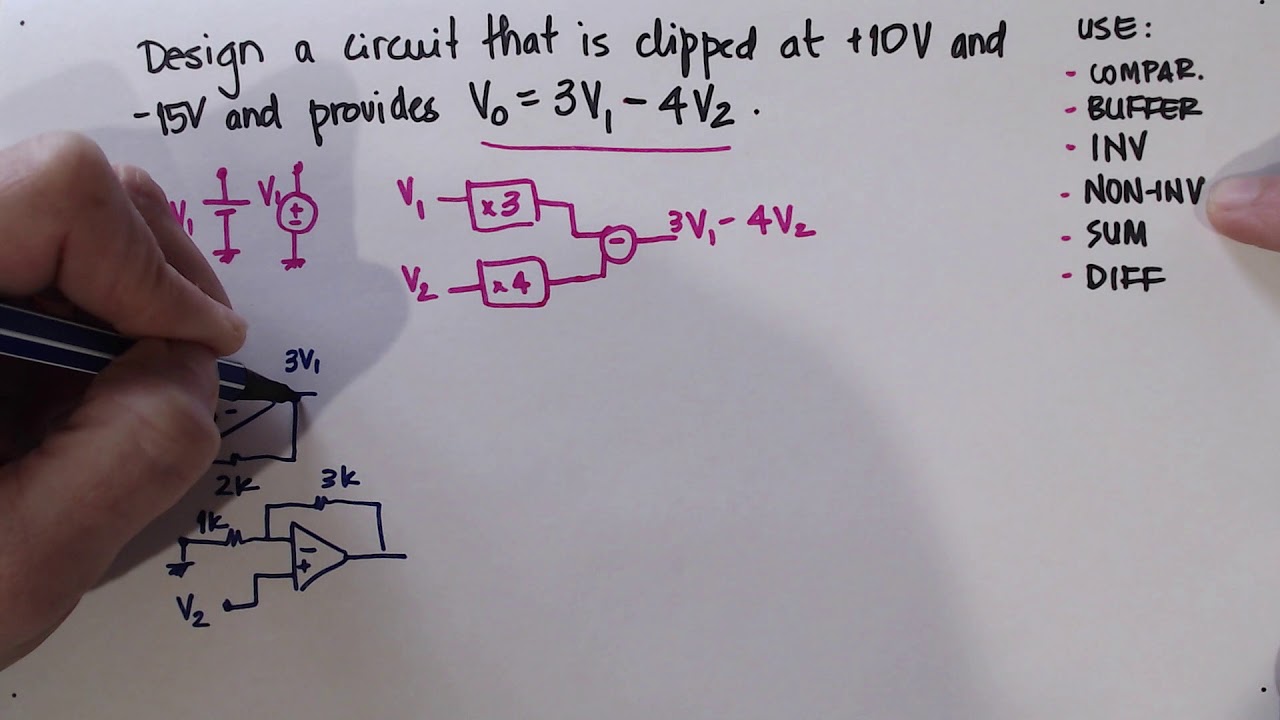 Design a circuit that is clipped at +10V and
-15V and provides V₀ = 3V₁ - 4V₂.
USE:
- COMPAR.
- BUFFER
- INV
- NON-INV
- SUM
- DIFF
V₁ V₁ +
-
V₁ ×3
- 3V₁ - 4V₂
V₂ ×4
3V₁
-
2K
3K
1K
-
+
V₂